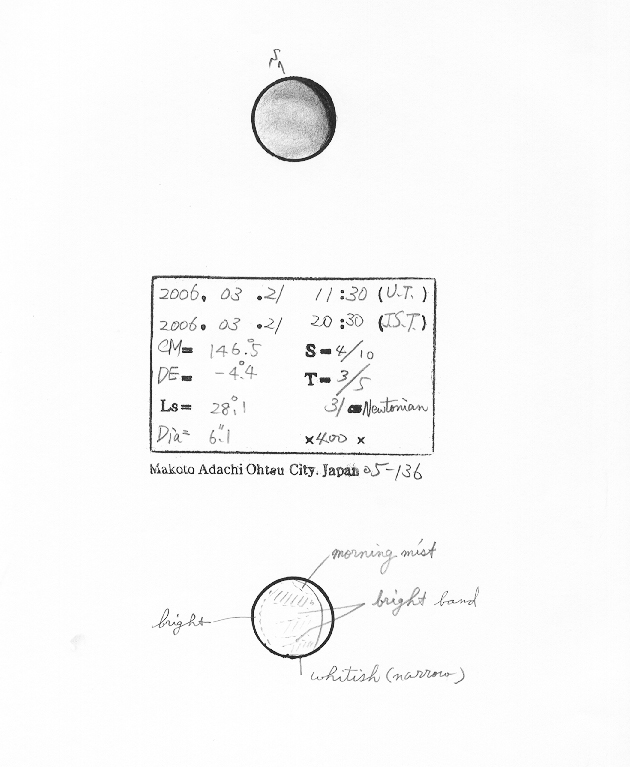 S
2006. 03 .21 11:30 (U.T.)
2006. 03 .21 20:30 (J.S.T.)
CM= 146.°5 S=4/10
DE= -4.°4 T=3/5
Ls= 28.°1 31 Newtonian
Dia= 6."1 ×400 ×
Makoto Adachi Ohtsu City. Japan 05-136
morning mist
bright band
bright
whitish (narrow)